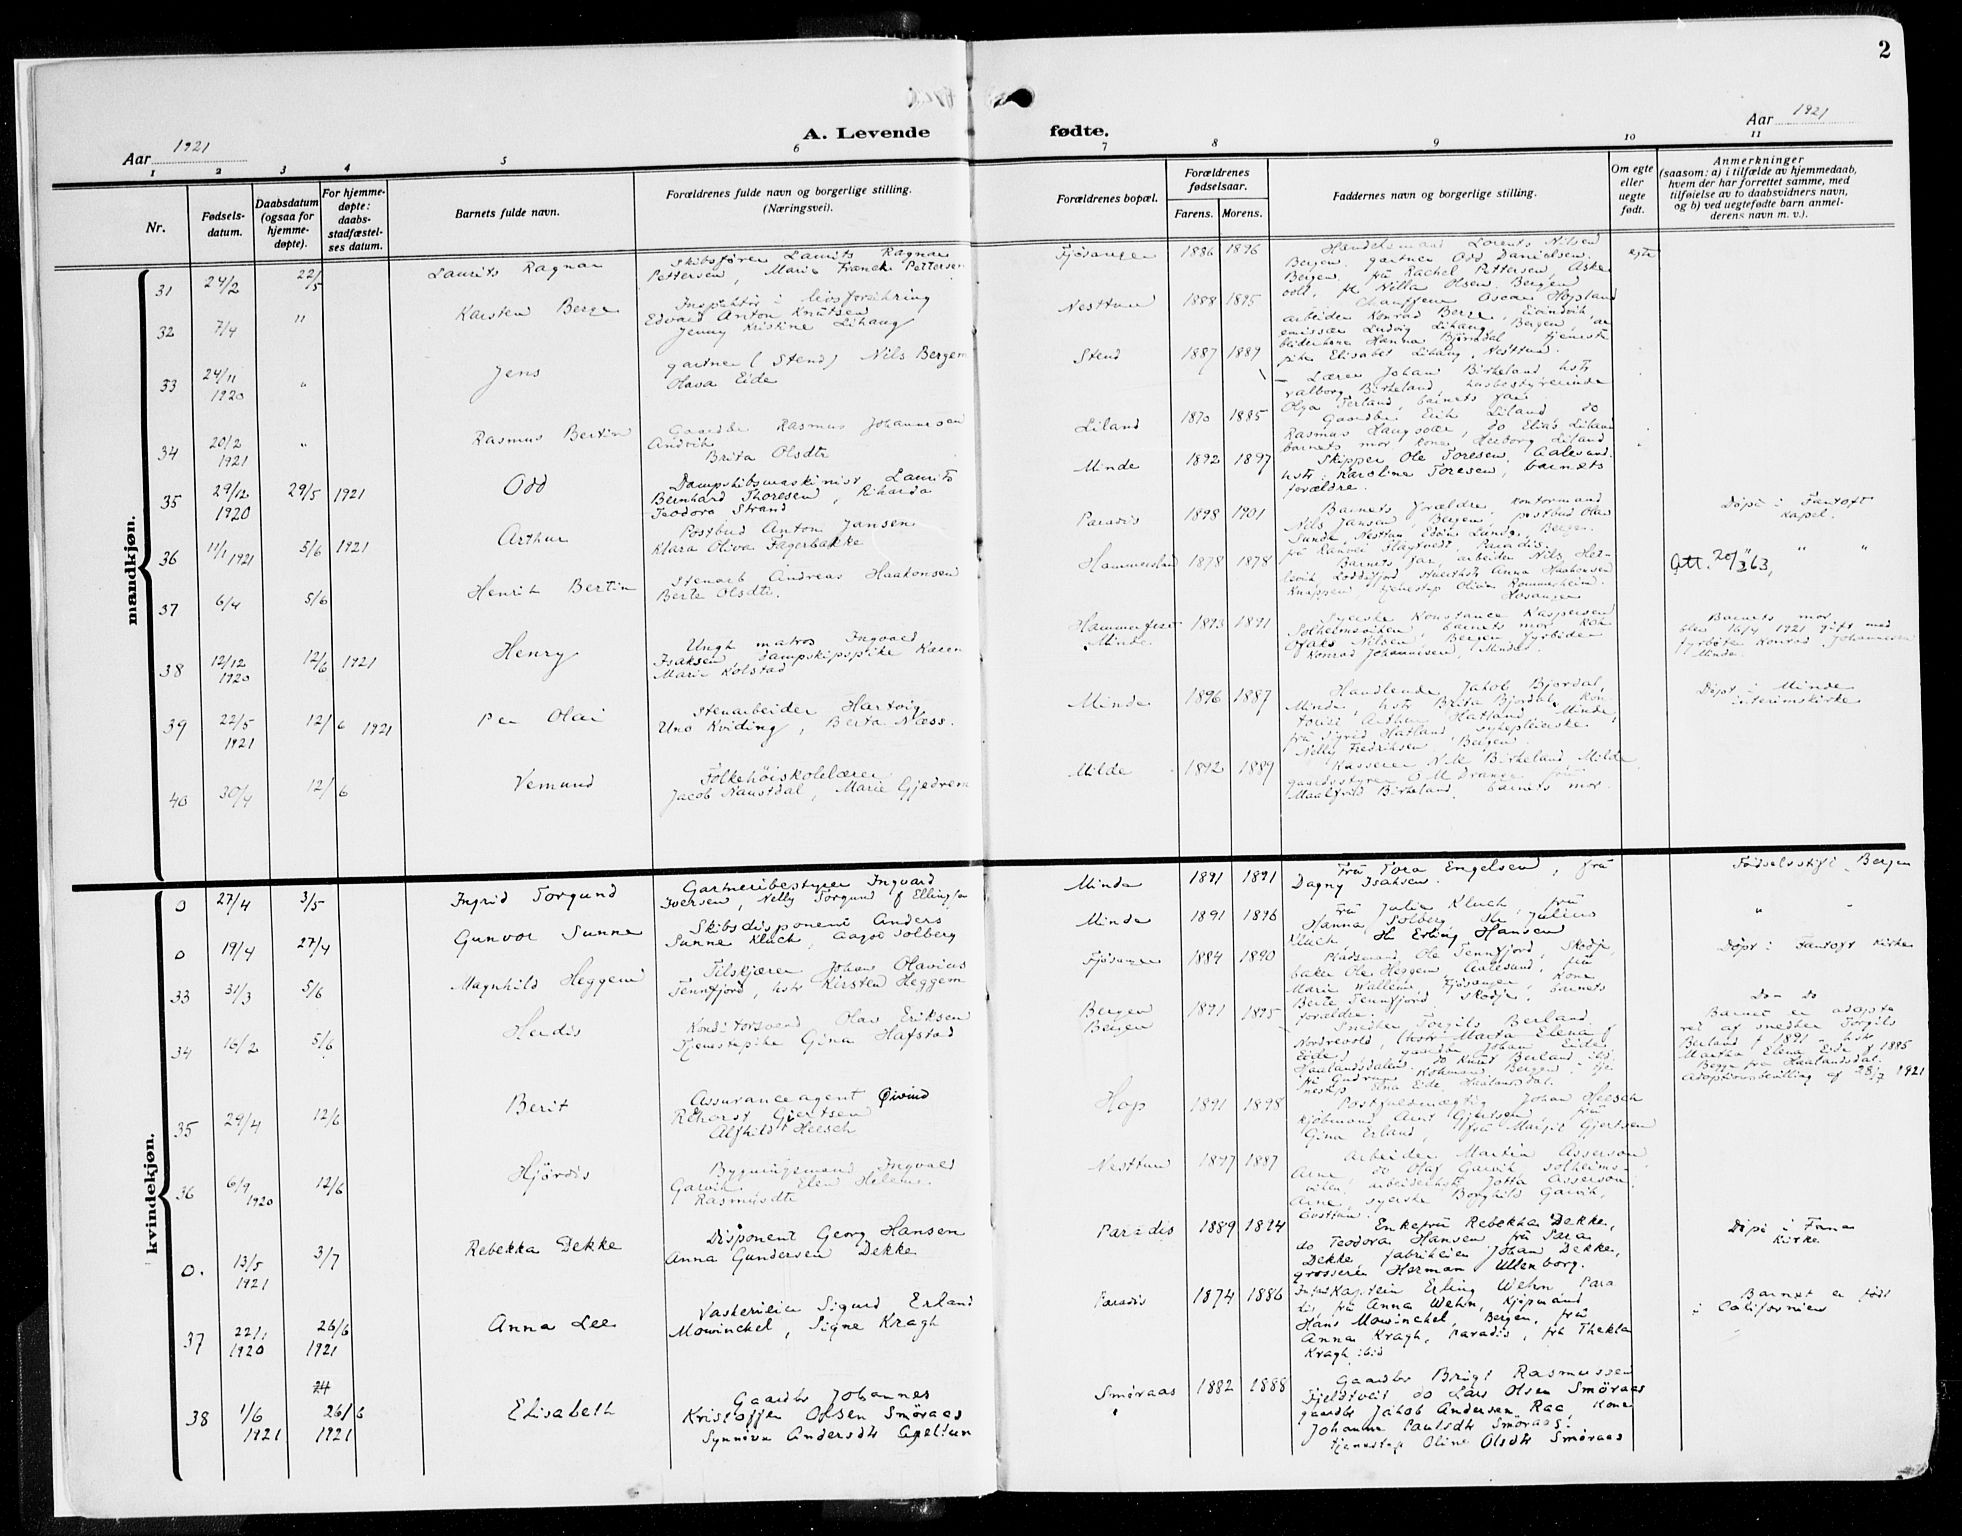 2
A. Levende fødte.
Aar 1921
Aar 1921
1 2 3 4 5 6 7 8 9 10 11
Nr.
Fødsels-
datum.
Daabsdatum
(ogsaa for
hjemme-
døpte).
For hjemme-
døpte:
daabs-
stadfæstel-
ses datum.
Barnets fulde navn.
Forældrenes fulde navn og borgerlige stilling.
(Næringsvei).
Forældrenes bopæl.
Forældrenes
fødselsaar.
Farens. Morens.
Faddernes navn og borgerlige stilling.
Om egte
eller
uegte
født.
Anmerkninger
(saasom: a) i tilfælde av hjemmedaab,
hvem der har forrettet samme, med
tilføielse av to daabsvidners navn,
og b) ved uegtefødte barn anmel-
derens navn m. v.).
mandkjøn.
31 24/2 22/5 Laurits Ragnar
Skibsfører Laurits Ragnar
Pettersen, Marie Franck Pettersen
Fjösanger 1886 1896
Handelsmand Lorents Nilsen
Bergen, gartner Odd Danielsen
Bergen, fru Rachel Pettersen, Aske
voll, frk Nilla Olsen, Bergen
egte
32 7/4 " Karsten Berge
Inspektör i livsforsikring
Edvard Anton Knutsen
Jenny Kristine Lihaug
Nesttun 1888 1895
Chauffeur Oscar Hopland
arbeider Konrad Berge, Eivindvik,
emissær Ludvig Lihaug, Bergen, ar
beiderkone Hanna Bjørndal, tjeneste
pike Elisabet Lihaug, Nesttun.
33 24/11 1920 " Jens
gartner (Stend) Nils Bergem
Olava Eide
Stend 1887 1889
Lærer Johan Birkeland, hstr
Valborg Birkeland, husbestyrerinde
Olga Terland, barnets far
34 20/2 1921 " Rasmus Bertin
Gaardbr Rasmus Johannesen
Andvik
Brita Olsdtr
Liland 1870 1885
Gaardbr. Erik Liland, do
Rasmus Haugsvær, do Elias Liland
barnets mor, kone Herborg Liland
35 29/12 1920 29/5 1921 Odd
Dampskibsmaskinist Laurits
Bernhard Thoresen, Rikarda
Teodora Strand
Minde 1892 1897
Skipper Ole Toresen, Aalesund.
hstr. Karoline Toresen, barnets
forældre.
36 11/1 1921 5/6 1921 Arthur
Postbud Anton Jansen
Klara Oliva Fagerbakke
Paradis 1898 1901
Barnets forældre, kontormand
Nils Jansen, Bergen, postbud Olav
Sunde, Nesttun, Edvin Lunde, Bergen
fru Ranvei Flagtvedt, Paradis.
Döpt i Fantoft
kapel.
37 6/4 5/6 Henrik Bertin
Stenarb Andreas Haakonsen
Berte Olsdtr.
Hammersland 1878 1878
Barnets far, arbeider Nils Hed-
levik, Loddefjord, Anna Haakonsen
Knappen, tjenestep Olivia Rommerheim.
Hosanger
Att. 20/3 63, " "
38 12/12 1920 12/6 1921 Henry
Ungk matros Ingvald
Isaksen, dampskipspike Karen
Marie Kolstad
Hammerfest
Minde 1893 1891
Syerske Konstance Kaspersen
Solheimsviken, barnets mor
Nilsen, Bergen, fyrböter
Konrad Johannesen, Minde.
Barnets mor
blev 16/4 1921 gift med
fyrbøter Konrad Johannesen
Minde.
39 22/5 1921 12/6 1921 Per Olai
Stenarbeider Hartvig
Uno Kviding, Berta Næss.
Minde 1896 1887
Handlende Jakob Bjordal,
Minde, hstr Brita Bjordal, kon
torist Arthur Hatland, Minde,
fru Sigrid Hatland, sykepleierske
Nelly Fredriksen, Bergen
Döpt i Minde
interimskirke
40 30/4 12/6 Vemund
Folkehöiskolelærer
Jacob Naustdal, Marie Gjedrem
Milde 1892 1889
Kasserer N. M. Birkeland, Milde
gaardsstyrer O M Drange, fru
Maalfrid Birkeland, barnets mor.
kvindekjøn.
0 27/4 3/5 Ingrid Torgund
Gartneribestyrer Ingvard
Iversen, Nelly Torgund f Ellingsen
Minde 1891 1891
Fru Tora Engelsen, fru
Dagny Isaksen.
Fødselsstift. Bergen
0 19/4 27/4 Gunvor Sunne
Skibsdisponent Anders
Sunne Kluch, Aagot Solberg
Minde 1891 1896
Fru Julie Kluch, fru
Hanna Solberg, Hr Julius
Kluch, Hr Erling Hansen
" "
33 31/3 5/6 Magnhild Heggem
Tilskjærer Johan Olavius
Tennfjord, hstr Kirsten Heggem
Fjösanger 1884 1890
Pladsmand Ole Tennfjord, Skodje,
baker Ole Heggem, Aalesund, fru
Marie Wallem, Fjösanger, kone
Berte Tennfjord, Skodje, barnets
forældre.
Döpt i Fantoft kirke
34 16/2 5/6 Herdis
Konditorsvend Olav Eriksen
Tjenestepike Gina Hafstad
Bergen
Bergen 1891 1895
Smedker Torgils Berland
Nordrevold, (hstr Marta Elena f
Eide), gaardbr Johan Eide,
Haalandsdalen, do Knut Berland, ibd
fru Gudrun Kohmann, Bergen, tje
nestep Elna Eide, Haalandsdal.
Do — Do
Barnet er adopte
ret af smedker Torgils
Berland f 1891 — hstr
Martha Elena Eide f 1895
Begge fra Haalandsdal.
Adoptionsbevilling af 28/7 1921
35 29/4 12/6 Berit
Assuranceagent Öivind
Rehorst Gjertsen
Alfhild Heesch
Hop 1891 1898
Postfuldmægtig Johan Heesch
Kjöbmand Arnt Gjertsen, fru
Gina Erland, fru Margit Gjertsen
36 6/9 1920 12/6 Hjördis
Bygningsmand Ingvald
Garvik, Elen Helene
Rasmusdtr
Nesttun 1897 1887
Arbeider Martin Asserson
Arne, do Olaf Garvik, Solheims-
viken, arbeiderhstr Jotta Asserson
Arne, syerske Borghild Garvik,
Nesttun.
0. 13/5 1921 3/7 Rebekka Dekke
Disponent Georg Hansen
Anna Gundersen Dekke
Paradis 1889 1894
Enkefru Rebekka Dekke,
do Teodora Hansen, fru Sara
Dekke, fabrikeier Johan Dekke,
grosserer Herman Ullenborg.
Döpt i Fana
Kirke
37 22/1 1920 26/6 1921 Anna Lee
Vaskerieier Sigurd Erland
Mowinckel, Signe Kragh
Paradis 1874 1886
Kaptein Erling Wehn, Para
dis, fru Anna Wehn, Kjöpmand
Hans Mowinckel, Bergen, fru
Anna Kragh, Paradis, frk Thekla
Kragh ibid
Barnet er født
i Californien
38 1/6 1921 26/6 1921 Elisabeth
Gaardbr Johannes
Kristoffer Olsen Smöraas
Synnöve Andersdtr Apeltun
Smöraas 1882 1888
Gaardbr Brigt Rasmussen
Fjeldtveit, do Lars Olsen Smöraas
gaardbr Jakob Andersen Raa, kone
Johanne Paulsdtr Smöraas,
tjenestep Oline Olsdtr Smöraas